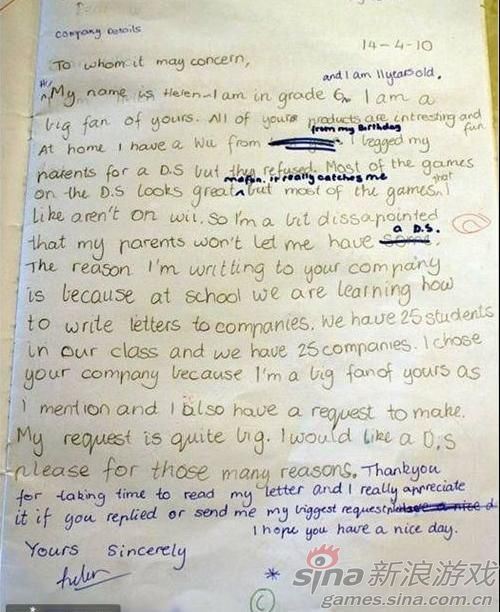 Company Details
14-4-10
To whom it may concern,
and I am 11 years old.
Hi,
My name is Helen I am in grade 6. I am a
big fan of yours. All of yours products are intresting and
fun
from my Birthday
At home I have a Wii from I begged my
parents for a D.S but they refused. Most of the games
it really catches me
on the D.S looks great but most of the games that I
like aren't on wii. So I'm a bit dissapointed
a D.S.
that my parents won't let me have some.
The reason I'm writting to your company
is because at school we are learning how
to write letters to companies. We have 25 students
in our class and we have 25 companies. I chose
your company because I'm a big fan of yours as
I mention and I also have a request to make.
My request is quite big. I would like a D.S
please for those many reasons. Thankyou
for taking time to read my letter and I really appreciate
it if you replied or send me my biggest request have a nice d
I hope you have a nice day.
Yours Sincerely
Helen
*
C
sina新浪游戏
games.sina.com.cn